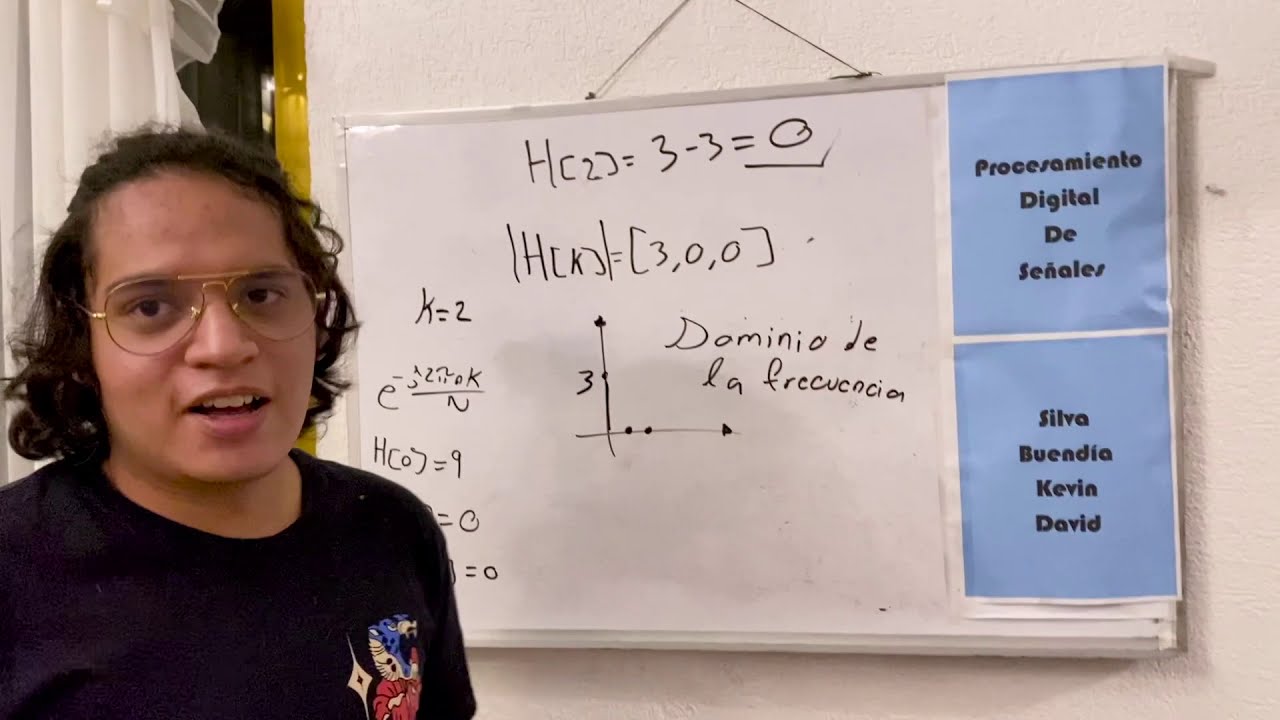 H[2]= 3-3=0
|H[k]|=[3,0,0]
k=2
e^-j2πnk/N
H[0]=9
=0
]=0
3
Dominio de
la frecuencia
Procesamiento
Digital
De
Señales
Silva
Buendía
Kevin
David